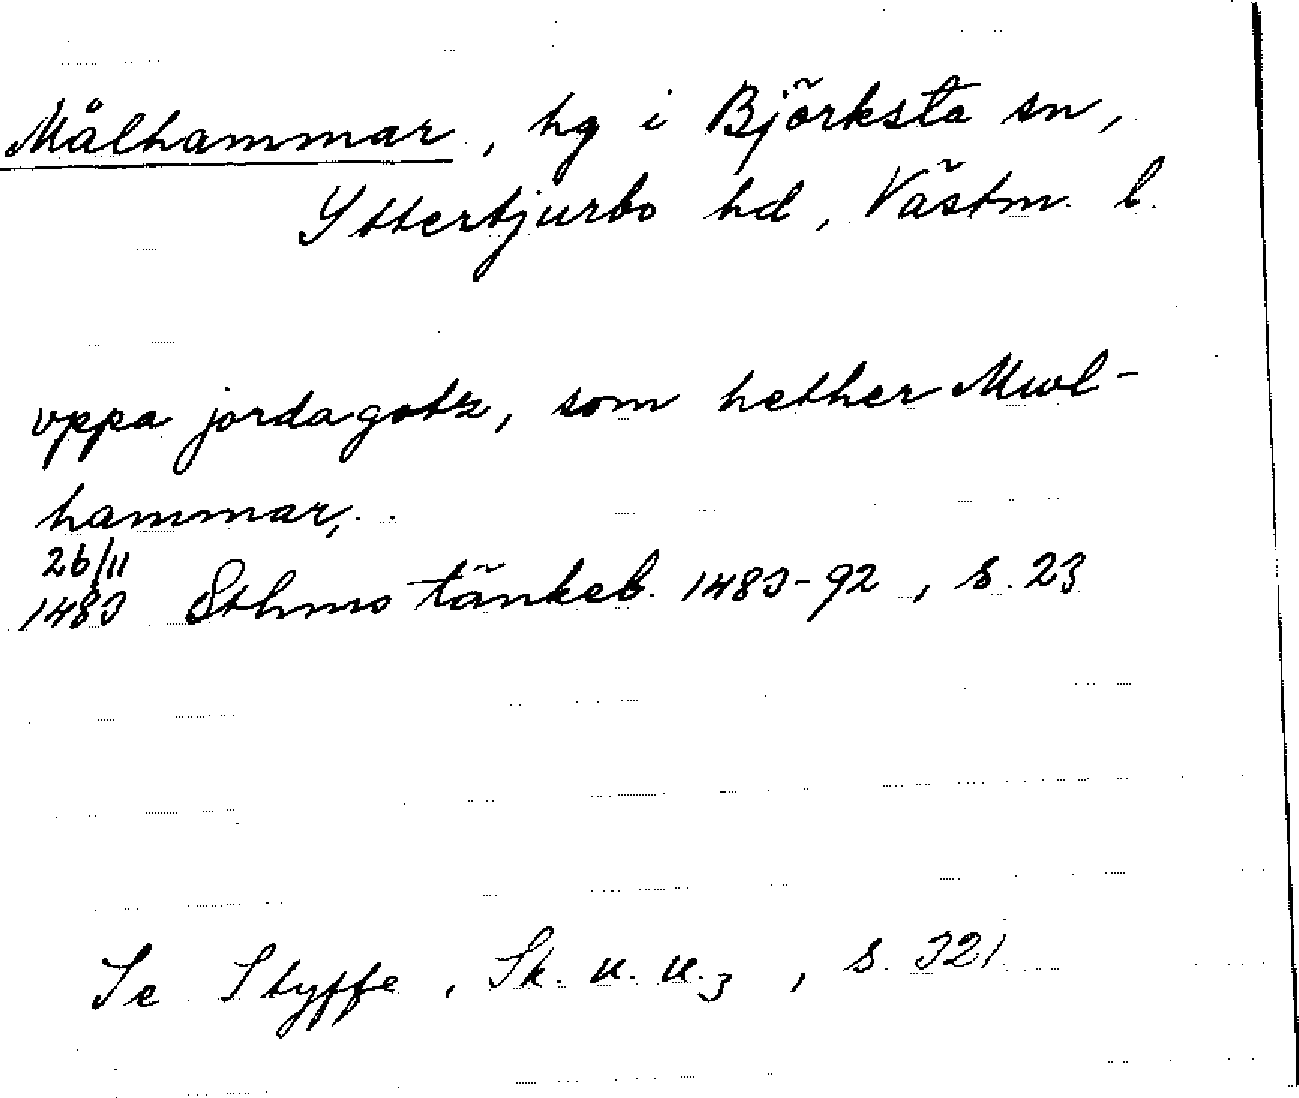 Målhammar, hg i Björksta sn,
Yttertjurbo hd, Västm. l.
vppa jordagotz, som hether Mwl-
hammar,
26/11
1483 Sthms tänkeb. 1483-92, s. 23
Se Styffe, Sk. u. u.3, s. 321